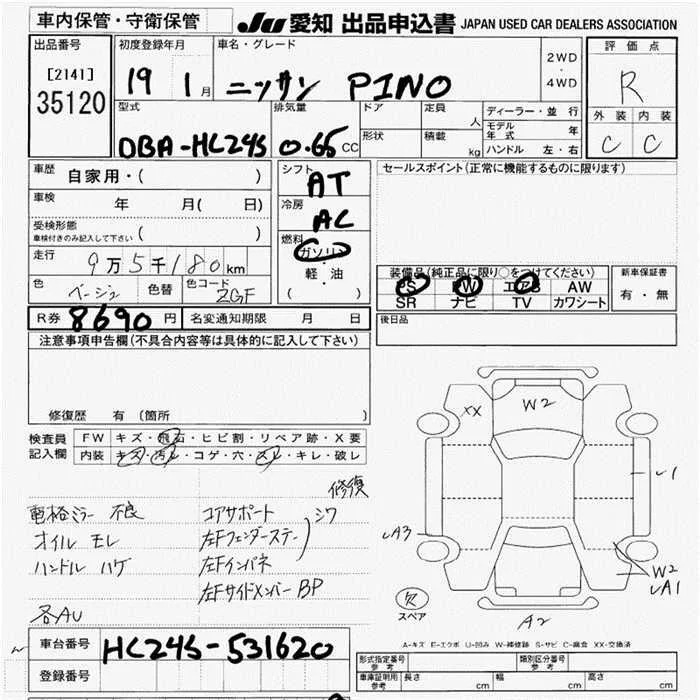 車内保管・守衛保管
JU 愛知 出品申込書 JAPAN USED CAR DEALERS ASSOCIATION
出品番号
[2141]
35120
初度登録年月
19 1 月
車名・グレード
ニッサン PINO
2WD
・
4WD
評価点
R
外装 内装
C C
型式
DBA-HC24S
排気量
0.65 CC
ドア
形状
定員
人
積載
kg
ディーラー・並行
モデル年式 年
ハンドル 左・右
車歴
自家用・( )
車検 年 月( 日)
受検形態
車検付きのみ記入して下さい ( )
走行 9万5千180km
色 ベージュ 色替 色コード ZGF
シフト
AT
冷房
AC
燃料
ガソリン
・
軽・油
( )
セールスポイント(正常に機能するものに限ります)
装備品(純正品に限り○をつけてください)
PS PW エアB AW
SR ナビ TV カワシート
新車保証書
有・無
R券 8690 円 名変通知期限 月 日
後日品
注意事項申告欄(不具合内容等は具体的に記入して下さい)
修復歴 有 (箇所 )
検査員
記入欄
FW キズ・飛石・ヒビ割・リペア跡・X要
内装 キズ・汚レ・コゲ・穴・スレ・キレ・破レ
修復
電格ミラー 不良 コアサポート シワ
オイル モレ 左Fフェンダーステー
ハンドル ハゲ 左Fインパネ
左Fサイドメンバー BP
各AU
XX
W2
U1
UA3
W2
UA1
A2
欠
スペア
A-キズ E-エクボ U-凹み W-補修跡 S-サビ C-腐食 XX-交換済
車台番号 HC24S-531620
登録番号
形式指定番号
参考
類別区分番号
参考
車庫証明用
参考
長さ cm 幅 cm 高さ cm